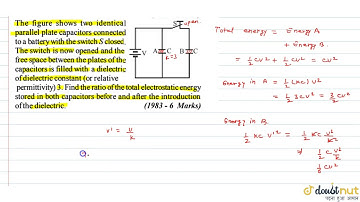 The figure shows two identical
parallel plate capacitors connected
to a battery with the switch S closed.
The switch is now opened and the
free space between the plates of the
capacitors is filled with a dielectric
of dielectric constant (or relative
permittivity) 3. Find the ratio of the total electrostatic energy
stored in both capacitors before and after the introduction
of the dielectric. (1983 - 6 Marks)
S open
V A C B C
K=3
V' = V/K
Q.
Total energy = Energy A
+ Energy B
= 1/2 CV² + 1/2 CV² = CV²
Energy in A = 1/2 (KC) V²
= 1/2 3CV² = 3/2 CV²
Energy in B,
1/2 KC V'² = 1/2 KC V²/K²
⇒ 1/2 C V²/K
1/6 CV²
doubtnut